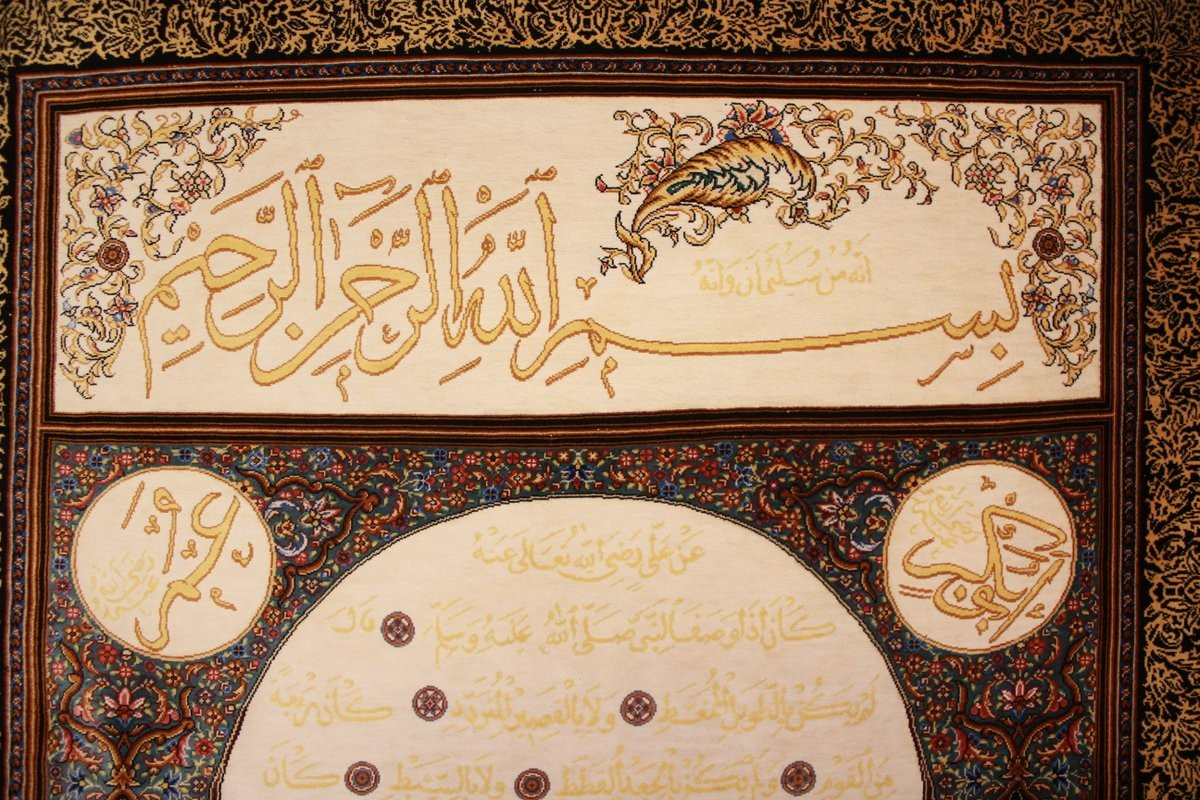 بِسْمِ اللهِ الرَّحْمٰنِ الرَّحِيمِ
اَنَّهُ مِنْ سُلَيْمٰانَ وَاَنَّهُ
ابوبكر رضي الله عنه
عمر رضي الله عنه
عَنْ عَلِيٍّ رَضِيَ اللهُ تَعَالٰى عَنْهُ
كَانَ اِذَا وَصَفَ النَّبِيَّ صَلَّى اللهُ عَلَيْهِ وَسَلَّمَ قَالَ
لَمْ يَكُنْ بِالطَّوِيلِ الْمُمَغَّطِ وَلَا بِالْقَصِيرِ الْمُتَرَدِّدِ كَانَ رَبْعَةً
مِنَ الْقَوْمِ وَلَمْ يَكُنْ بِالْجَعْدِ الْقَطَطِ وَلَا بِالسَّبْطِ كَانَ